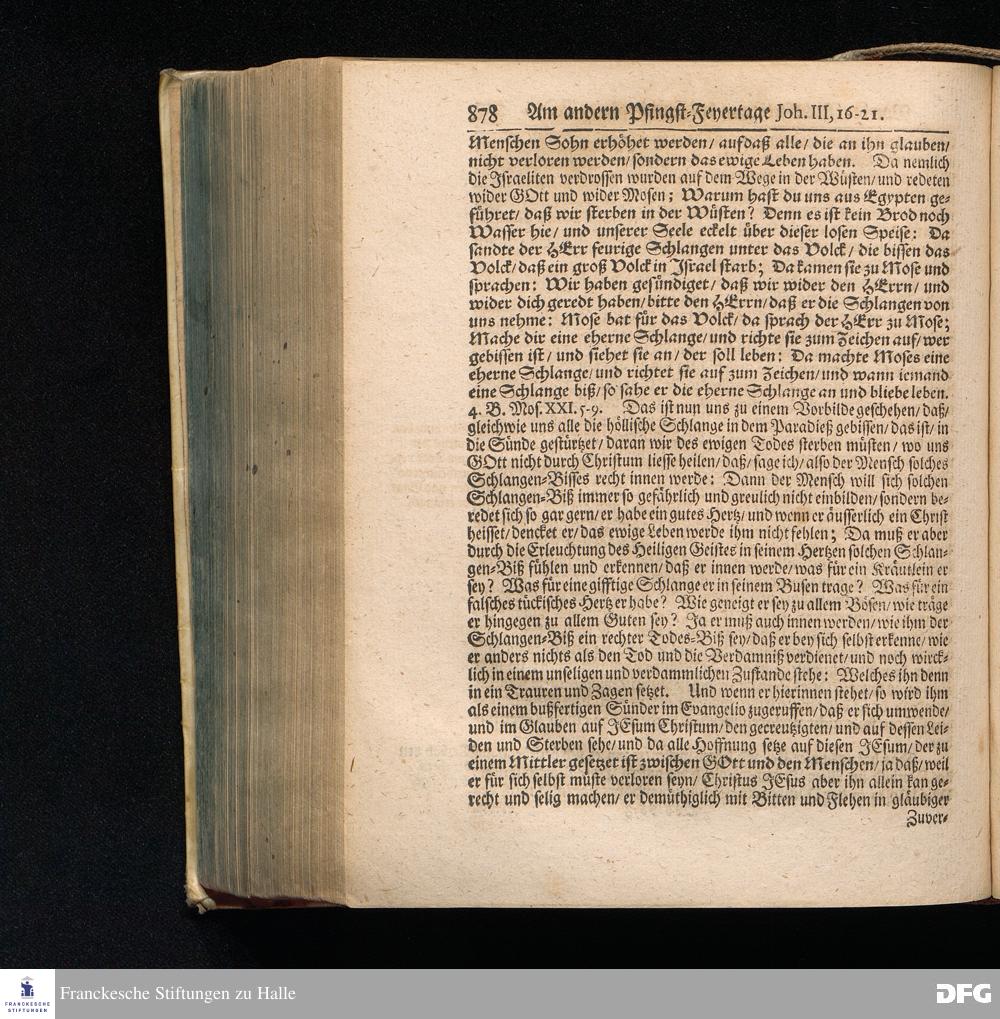 878 Am andern Pfingst-Feyertage Joh. III, 16-21.
Menschen Sohn erhöhet werden/ aufdaß alle/ die an ihn glauben/
nicht verloren werden/ sondern das ewige Leben haben. Da nemlich
die Israeliten verdrossen wurden auf dem Wege in der Wüsten/ und redeten
wider GOtt und wider Mosen; Warum hast du uns aus Egypten ge-
führet/ daß wir sterben in der Wüsten? Denn es ist kein Brod noch
Wasser hie/ und unserer Seele eckelt über dieser losen Speise: Da
sandte der HErr feurige Schlangen unter das Volck/ die bissen das
Volck/ daß ein groß Volck in Israel starb; Da kamen sie zu Mose und
sprachen: Wir haben gesündiget/ daß wir wider den HErrn/ und
wider dich geredt haben/ bitte den HErrn/ daß er die Schlangen von
uns nehme: Mose bat für das Volck/ da sprach der HErr zu Mose;
Mache dir eine eherne Schlange/ und richte sie zum Zeichen auf/ wer
gebissen ist/ und siehet sie an/ der soll leben: Da machte Moses eine
eherne Schlange/ und richtet sie auf zum Zeichen/ und wann iemand
eine Schlange biß/ so sahe er die eherne Schlange an und bliebe leben.
4. B. Mos. XXI. 5-9. Das ist nun uns zu einem Vorbilde geschehen/ daß/
gleichwie uns alle die höllische Schlange in dem Paradieß gebissen/ das ist/ in
die Sünde gestürtzet/ daran wir des ewigen Todes sterben müsten/ wo uns
GOtt nicht durch Christum liesse heilen/ daß/ sage ich/ also der Mensch solches
Schlangen-Bisses recht innen werde: Dann der Mensch will sich solchen
Schlangen-Biß immer so gefährlich und greulich nicht einbilden/ sondern be-
redet sich so gar gern/ er habe ein gutes Hertz/ und wenn er äusserlich ein Christ
heisset/ dencket er/ das ewige Leben werde ihm nicht fehlen; Da muß er aber
durch die Erleuchtung des Heiligen Geistes in seinem Hertzen solchen Schlan-
gen-Biß fühlen und erkennen/ daß er innen werde/ was für ein Kräutlein er
sey? Was für eine gifftige Schlange er in seinem Busen trage? Was für ein
falsches tückisches Hertz er habe? Wie geneigt er sey zu allem Bösen/ wie träge
er hingegen zu allem Guten sey? Ja er muß auch innen werden/ wie ihm der
Schlangen-Biß ein rechter Todes-Biß sey/ daß er bey sich selbst erkenne/ wie
er anders nichts als den Tod und die Verdamniß verdienet/ und noch wirck-
lich in einem unseligen und verdammlichen Zustande stehe: Welches ihn denn
in ein Trauren und Zagen setzet. Und wenn er hierinnen stehet/ so wird ihm
als einem bußfertigen Sünder im Evangelio zugeruffen/ daß er sich umwende/
und im Glauben auf JEsum Christum/ den gecreutzigten/ und auf dessen Lei-
den und Sterben sehe/ und da alle Hoffnung setze auf diesen JEsum/ der zu
einem Mittler gesetzet ist zwischen GOtt und den Menschen/ ja daß/ weil
er für sich selbst müste verloren seyn/ Christus JEsus aber ihn allein kan ge-
recht und selig machen/ er demüthiglich mit Bitten und Flehen in gläubiger
Zuver-
FRANCKESCHE
STIFTUNGEN
Franckesche Stiftungen zu Halle
DFG